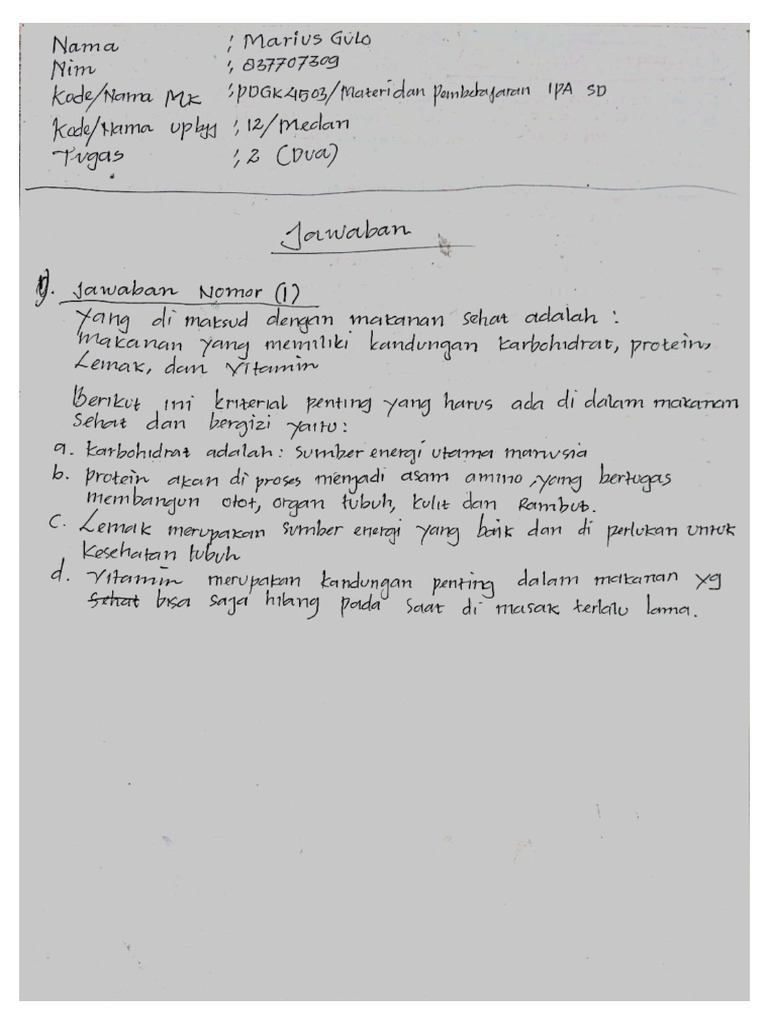 Nama : Marius Gulo
Nim : 837707309
Kode/Nama MK : PDGK4503/Materi dan Pembelajaran IPA SD
Kode/Nama upbjj : 12/Medan
Tugas : 2 (Dua)
Jawaban
1). Jawaban Nomor (1)
Yang di maksud dengan makanan sehat adalah :
Makanan yang memiliki kandungan karbohidrat, protein,
Lemak, dan Vitamin
Berikut ini kriterial penting yang harus ada di dalam makanan
sehat dan bergizi yaitu:
a. Karbohidrat adalah : sumber energi utama manusia
b. protein akan di proses menjadi asam amino, yang bertugas
membangun otot, organ tubuh, kulit dan Rambut.
C. Lemak merupakan sumber energi yang baik dan di perlukan untuk
kesehatan tubuh
d. Vitamin merupakan kandungan penting dalam makanan yg
sehat bisa saja hilang pada saat di masak terlalu lama.